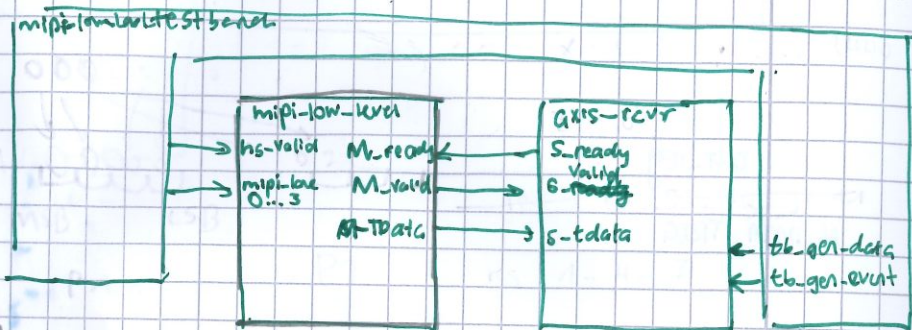 mipi-lowleveltestbench
mipi-low-level
hs-valid
M-ready
mipi-lane
0...3
M-valid
M-TData
axis-rcvr
S-ready
Valid
S-ready
s-tdata
tb-gen-data
tb-gen-event